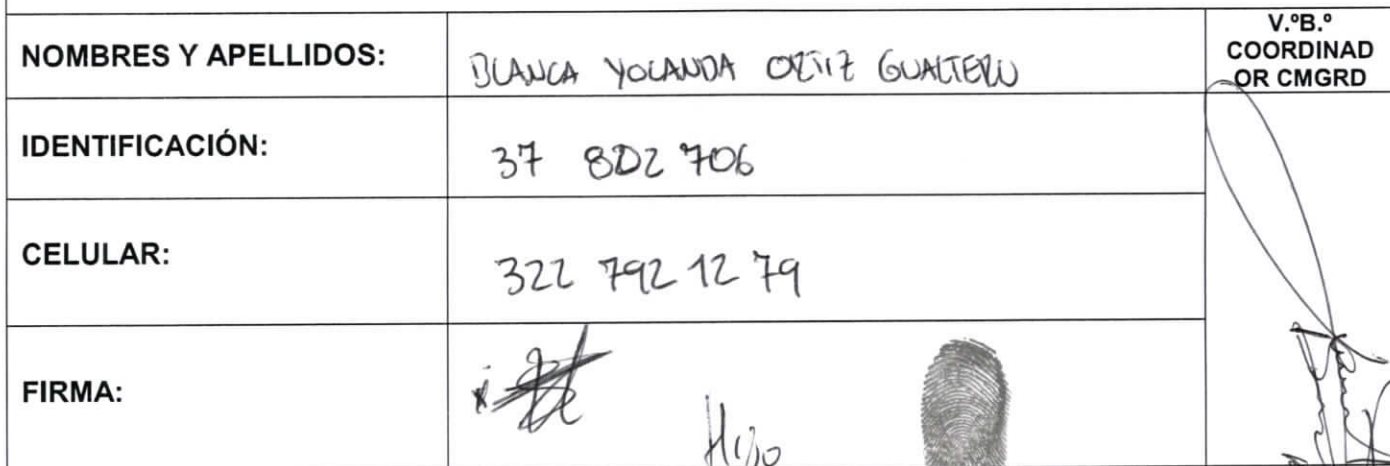 NOMBRES Y APELLIDOS: BLANCA YOLANDA ORTIZ GUALTERO
V.ºB.º
COORDINAD
OR CMGRD
IDENTIFICACIÓN: 37 802 706
CELULAR: 322 792 12 79
FIRMA: Hijo